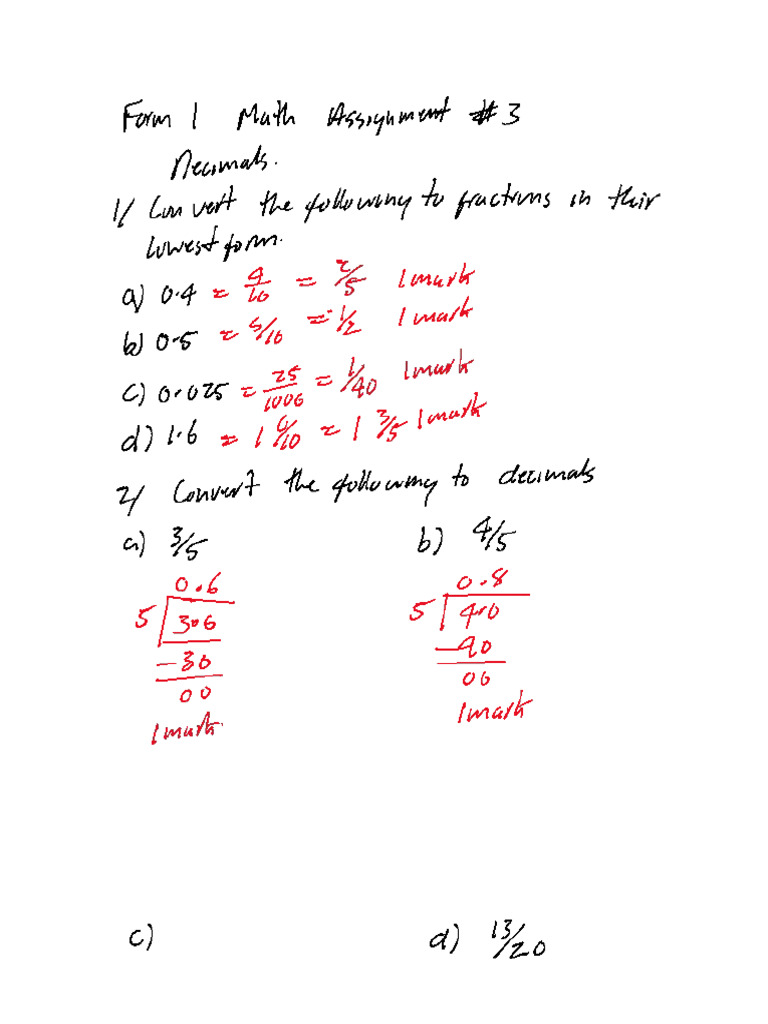 Form 1 Math Assignment #3
Decimals.
1/ Convert the following to fractions in their
lowest form.
a) 0.4 = 4/10 = 2/5 1 mark
b) 0.5 = 5/10 = 1/2 1 mark
c) 0.025 = 25/1000 = 1/40 1 mark
d) 1.6 = 1 6/10 = 1 3/5 1 mark
2/ Convert the following to decimals
a) 3/5 b) 4/5
0.6 0.8
5 3.0 5 4.0
-30 -40
00 00
1 mark. 1 mark
c) d) 13/20